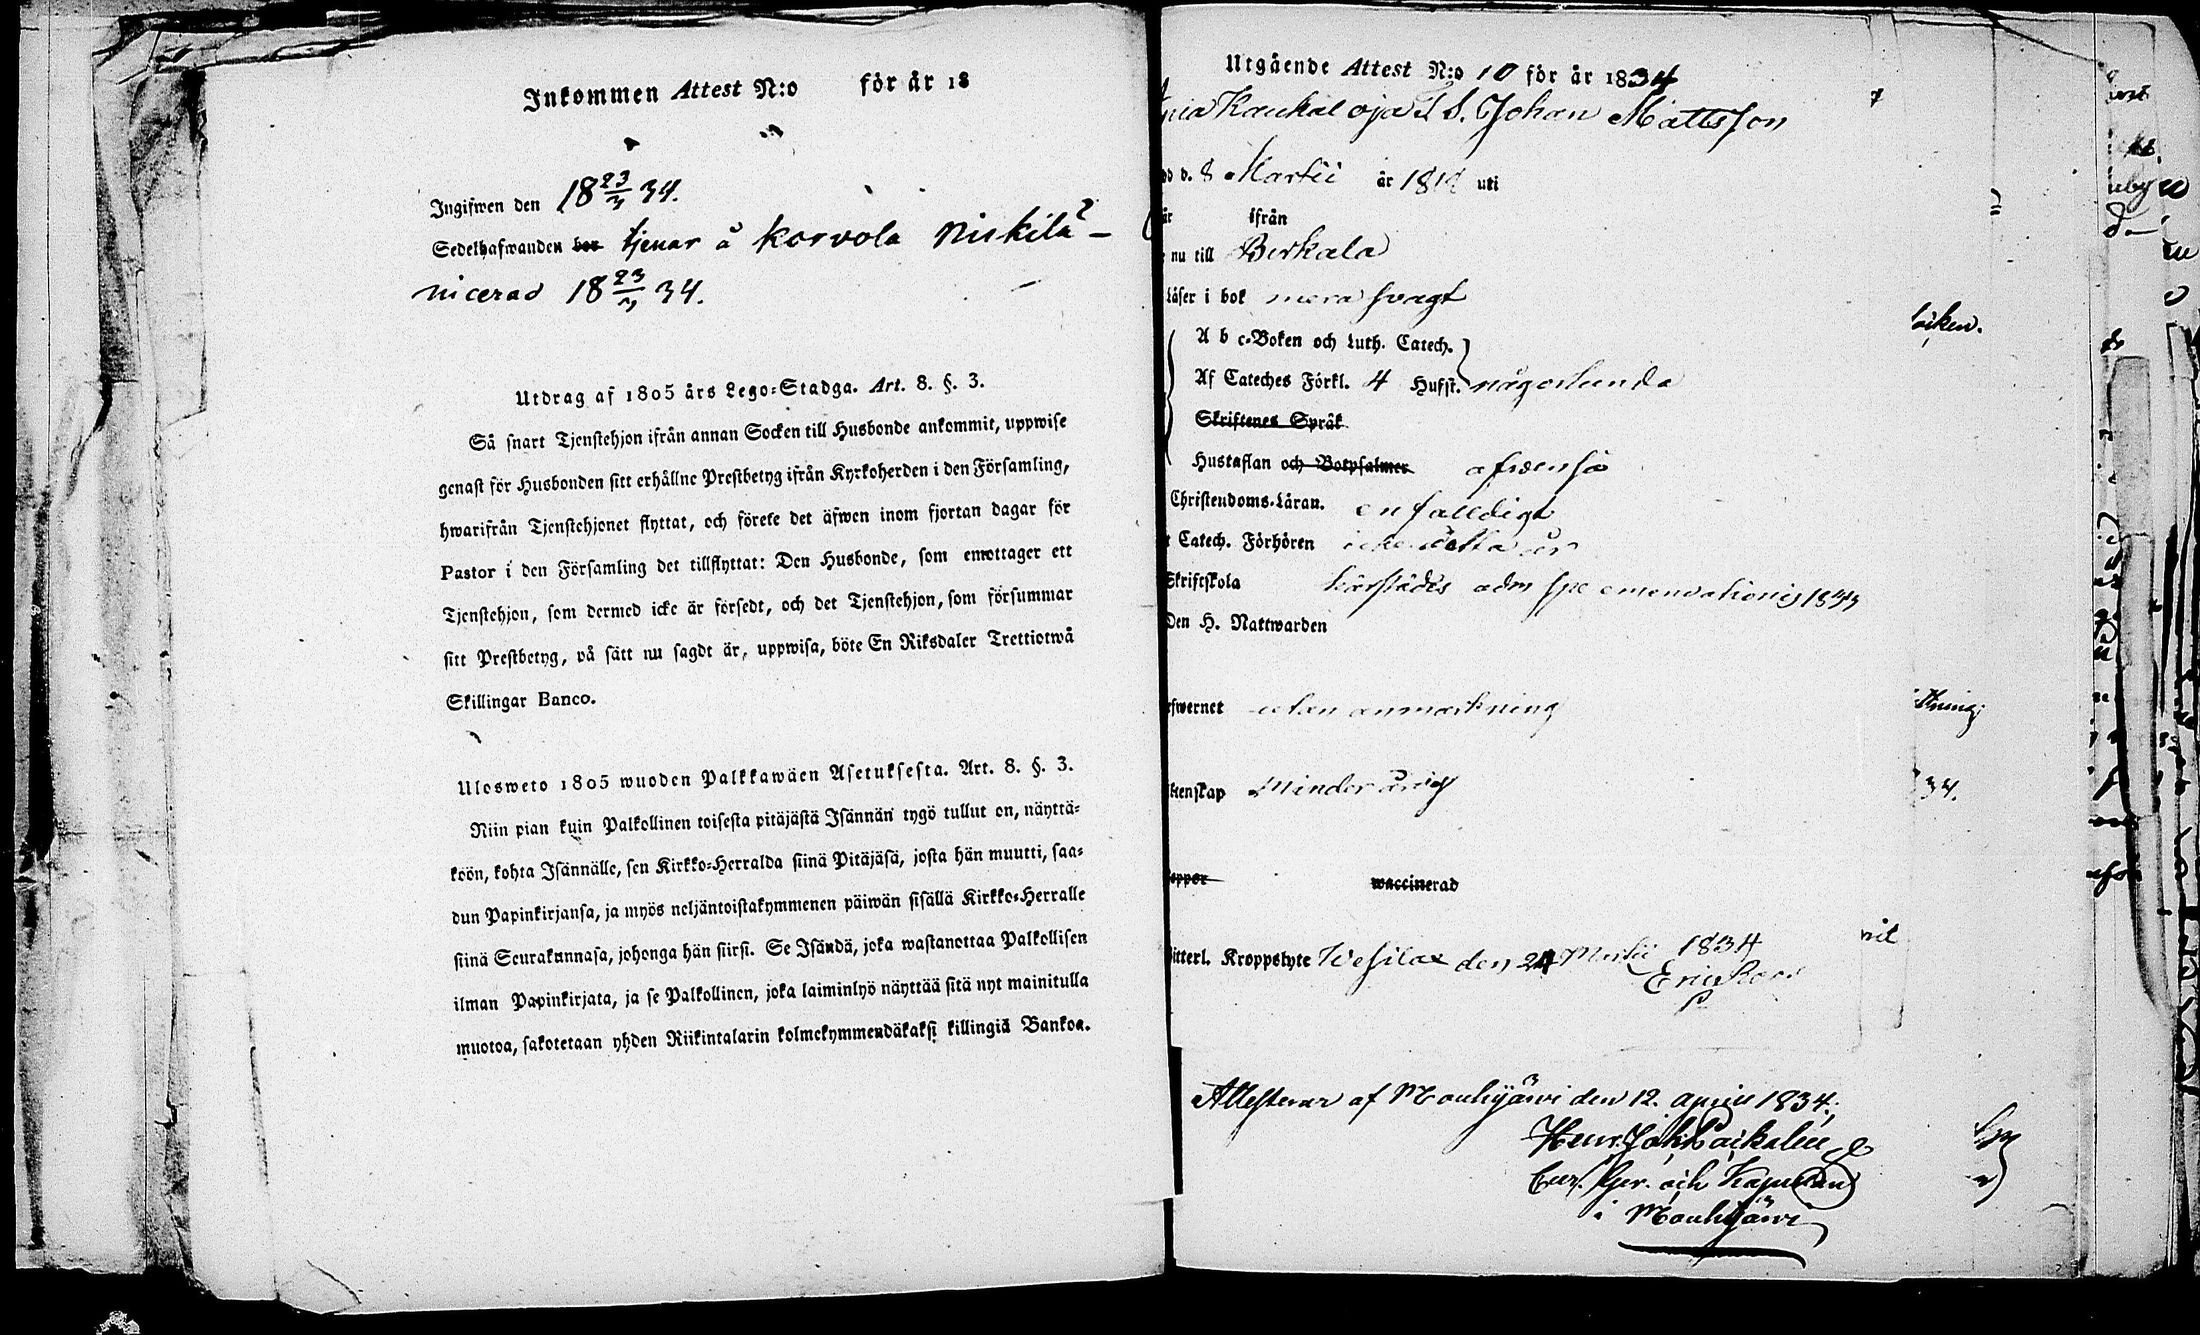 Inkommen Attest N:o för år 18
Ingifwen den 18 23/3 34.
Sedelhafwanden bor tjenar å Korvola Niskila
nicerad 18 23/3 34.
Utdrag af 1805 års Lego=Stadga. Art. 8. §. 3.
Så snart Tjenstehjon ifrån annan Socken till Husbonde ankommit, uppwise
genast för Husbonden sitt erhållne Prestbetyg ifrån Kyrkoherden i den Församling,
hwarifrån Tjenstehjonet flyttat, och förete det äfwen inom fjortan dagar för
Pastor i den Församling det tillflyttat: Den Husbonde, som emottager ett
Tjenstehjon, som dermed icke är försedt, och det Tjenstehjon, som försummar
sitt Prestbetyg, på sätt nu sagdt är, uppwisa, böte En Riksdaler Trettiotwå
Skillingar Banco.
Ulosweto 1805 wuoden Palkkawäen Asetuksesta. Art. 8. §. 3.
Niin pian kuin Palkollinen toisesta pitäjästä Isännän tygö tullut on, näyttä=
köön, kohta Isännälle, sen Kirkko=Herralda siinä Pitäjäsä, josta hän muutti, saa=
dun Papinkirjansa, ja myös neljäntoistakymmenen päiwän sisällä Kirkko=Herralle
siinä Seurakunnasa, johonga hän siirsi. Se Isändä, joka wastanottaa Palkollisen
ilman Papinkirjata, ja se Palkollinen, joka laiminlyö näyttää sitä nyt mainitulla
muotoa, sakotetaan yhden Riikintalarin kolmekymmendäkaksi killingiä Bankoa.
Utgående Attest N:o 10 för år 1834
Johan Mattsson
d. 8 Martii år 181 uti
är ifrån
nu till Birkala
Läser i bok mera svagt
A b c=Boken och Luth. Catech.
Af Cateches Förkl. 4 Hufst. någorlunda
Skriftenes Språk
Hustaflan och Botpsalmer afvenså
Christendoms=Läran. enfaldigt
Catech. Förhören icke detta år
Skriftskola härstädes adm spe emendationis 1833
Den H. Nattwarden
fwernet utan anmärkning
tenskap Minderårig
oppor waccinerad
itterl. Kroppslyte Wesilax den 24 Martii 1834
Attesterar af Mouhijärvi den 12. April 1834.
i Mouhijärvi